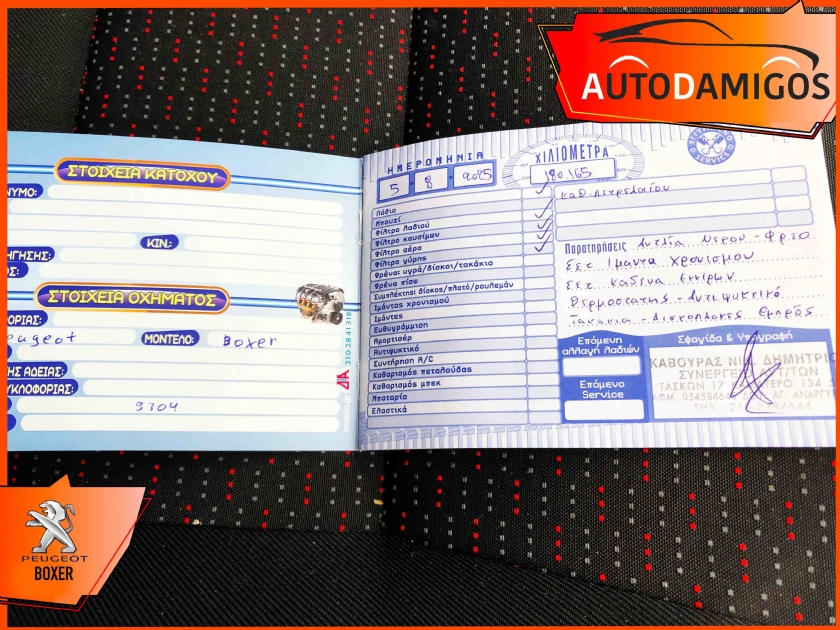 AUTODAMIGOS
ΣΤΟΙΧΕΙΑ ΚΑΤΟΧΟΥ
ΝΥΜΟ:
ΚΙΝ.:
ΗΓΗΣΗΣ:
ΣΤΟΙΧΕΙΑ ΟΧΗΜΑΤΟΣ
ΟΡΙΑΣ:
eugeot
ΜΟΝΤΕΛΟ: Boxer
ΗΣ ΑΔΕΙΑΣ:
ΥΚΛΟΦΟΡΙΑΣ:
9304
ΔΙΑ 210 28 41 318
ΗΜΕΡΟΜΗΝΙΑ
5 8 2025
ΧΙΛΙΟΜΕΤΡΑ
180.165
SERVICE
Λάδια
Μπουζί
Φίλτρο λαδιού
Φίλτρο καυσίμων
Φίλτρο αέρα
Φίλτρο γύρης
Φρένα: υγρά/δίσκοι/τακάκια
Φρένα πίσω
Συμπλέκτης: δίσκος/πλατό/ρουλεμάν
Ιμάντας χρονισμού
Ιμάντες
Ευθυγράμμιση
Αμορτισέρ
Αντιψυκτικό
Συντήρηση A/C
Καθαρισμός πεταλούδας
Καθαρισμός μπεκ
Μπαταρία
Ελαστικά
Καθ. πετρελαίου
Παρατηρήσεις Αντλία Νερου -
Σετ Ιμαντα Χρονισμου
Σετ Καδενα
Θερμοστατης - Αντιψυκτικό
Τακακια - Δισκοπλακες Εμπρός
Επόμενη αλλαγή λαδιών
Επόμενο Service
Σφραγίδα & Υπογραφή
ΚΑΒΟΥΡΑΣ ΝΙΚ. ΔΗΜΗΤΡΙΟ
ΣΥΝΕΡΓΕΙΟ
ΤΑΣΚΩΝ 17
PEUGEOT
BOXER